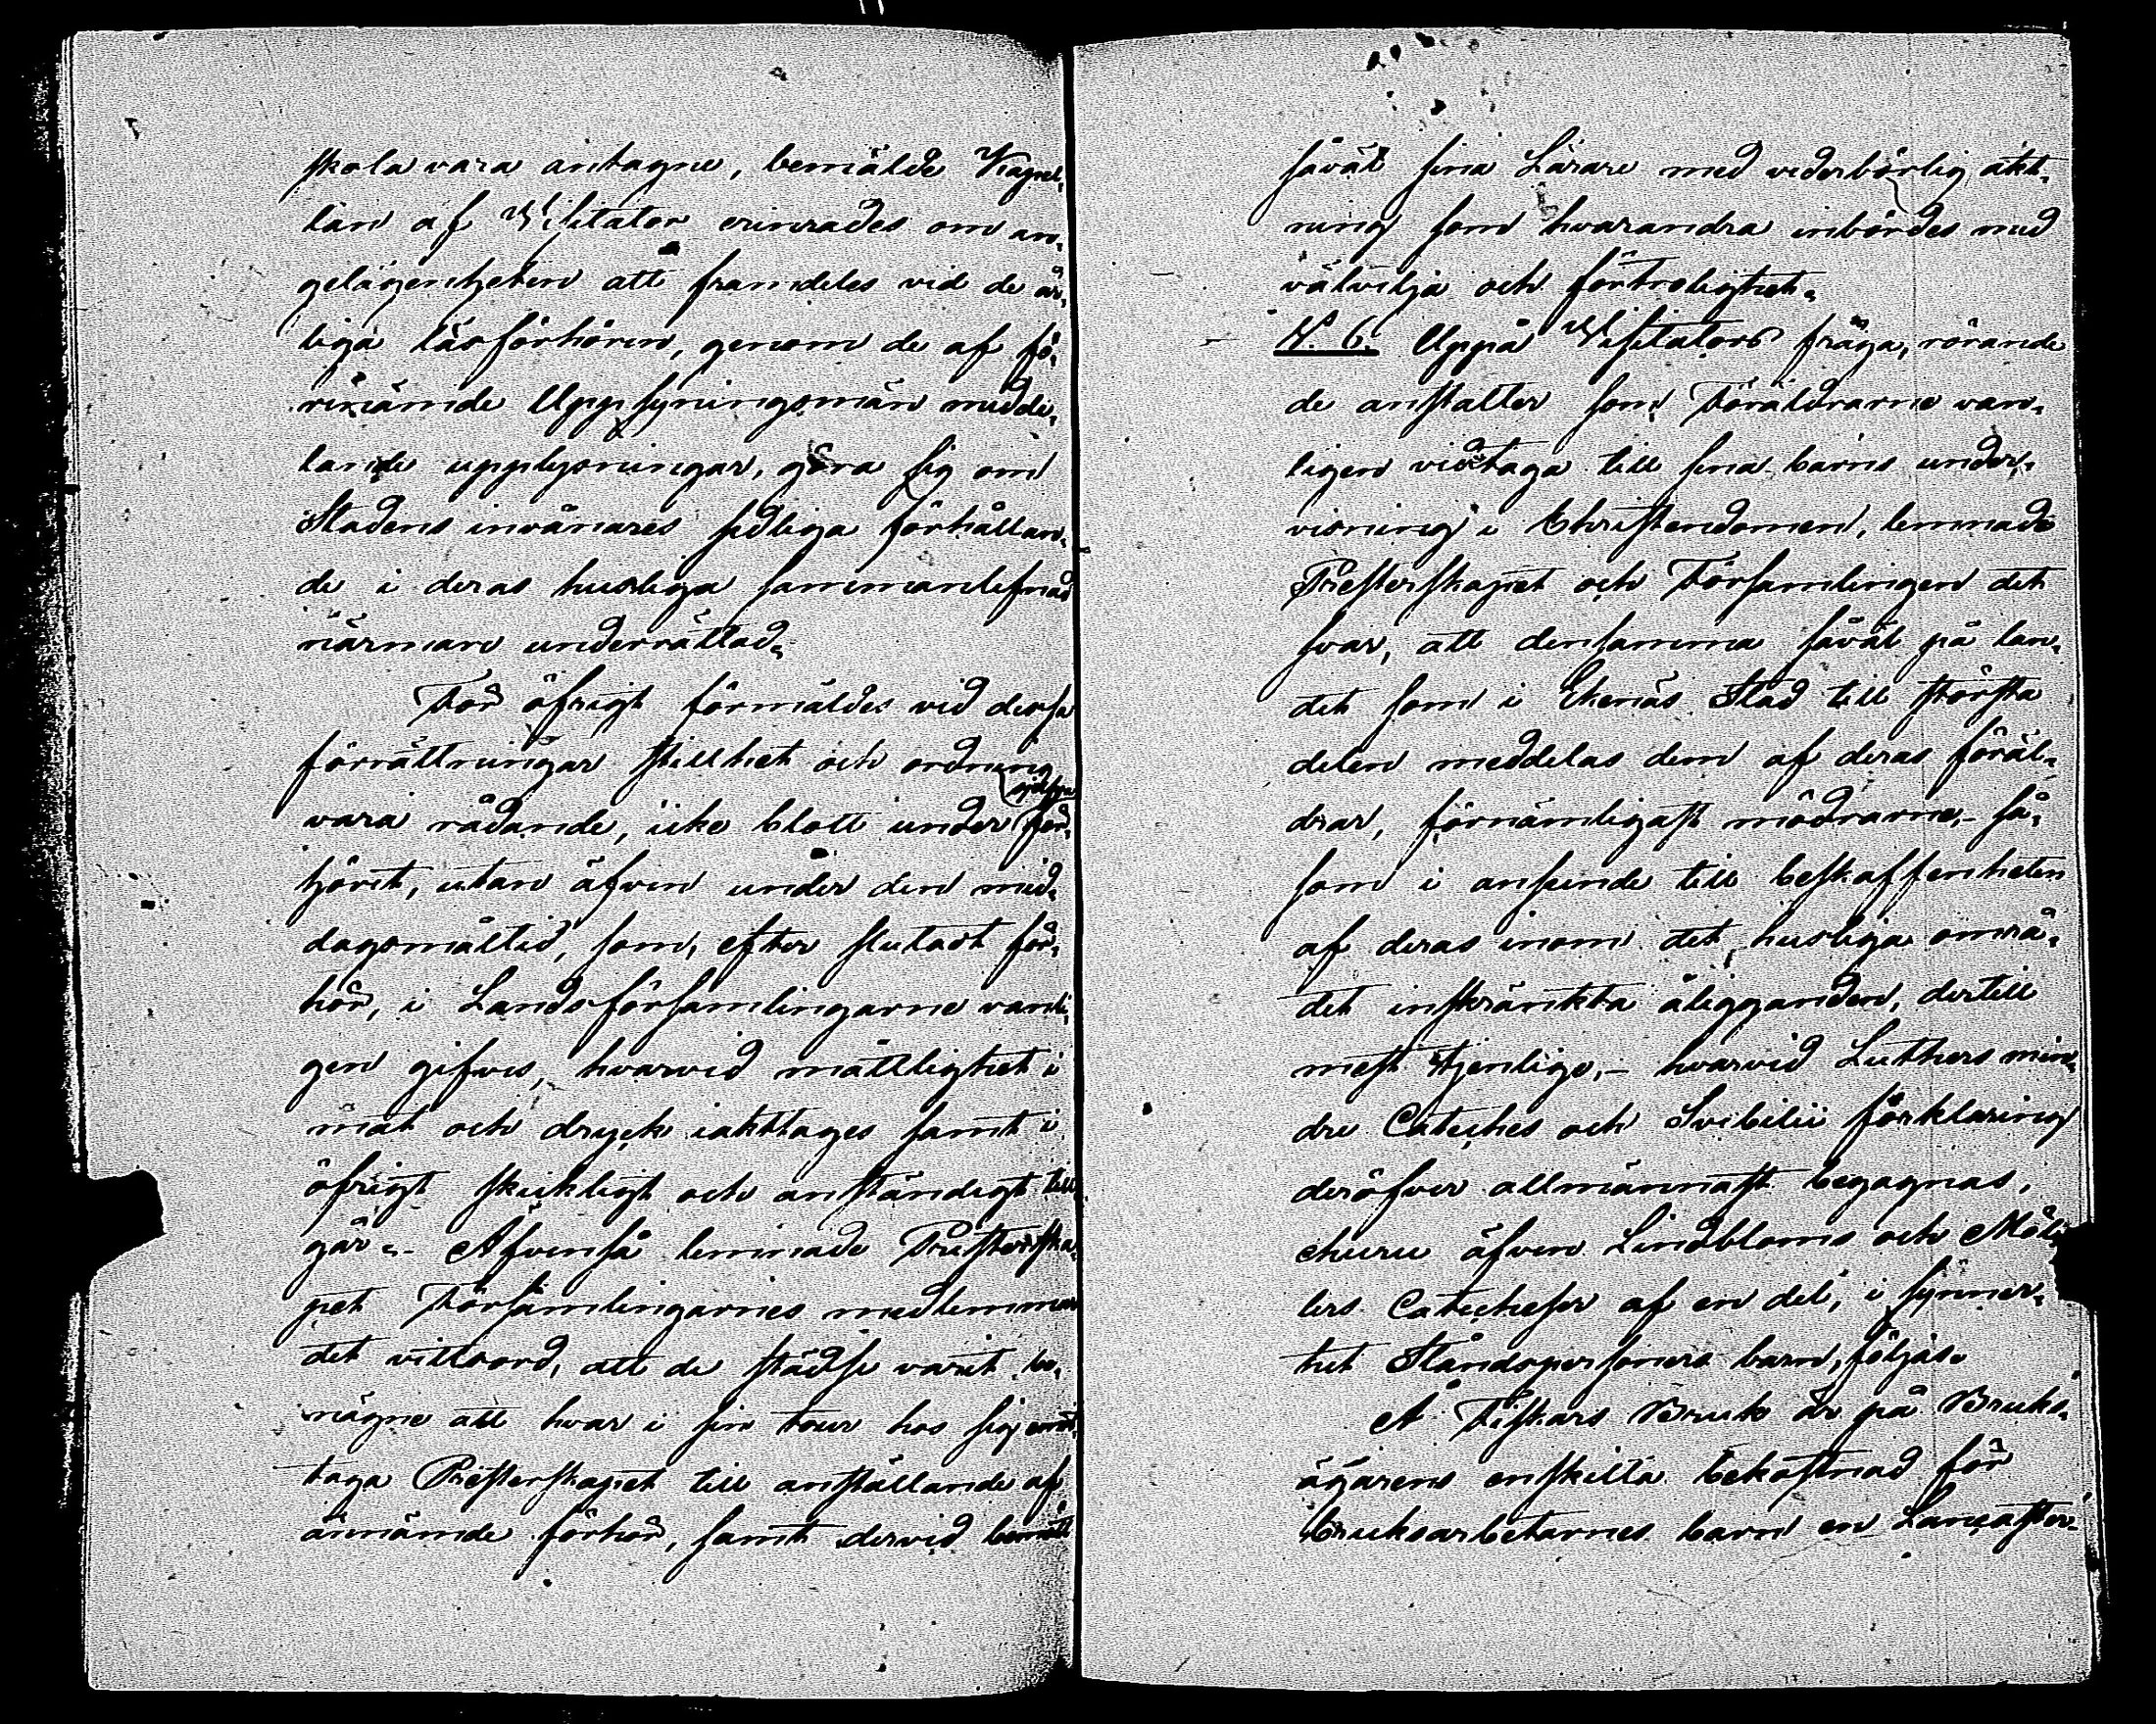 skola vara antagne, bemälde Kapel-
lan af Visitator erinrades om an-
gelägenheten att framdeles vid de år-
liga läsförhören, genom de af fö-
renämde Uppsyningsmän medde-
lande upplysningar, göra sig om
Stadens invånares sedliga förhållan-
de i deras husliga sammanlefnad
närmare underrättad.
För öfrigt förmäldes vid dessa
förrättningar stillhet och ordning
vara rådande, icke blott under sjelfva för-
höret, utan äfven under den mid-
dagsmåltid, som, efter slutadt för-
hör, i Landsförsamlingarne vanli-
gen gifves, hvarvid måttlighet i
mat och dryck iakttages samt i
öfrigt skickligt och anständigt till
går. - Äfvenså lemnade Presterska-
pet Församlingarnes medlemmar
det vittsord, att de städse varit be-
nägne att hvar i sin tour hos sig emot
taga Presterskapet till anställande af
ofnämde förhör, samt dervid bemött
såväl sina Lärare med vederbörlig akt-
ning som hvarandra inbördes med
välvilja och förtrolighet.
N. 6. Uppå Visitators fråga, rörande
de anstalter som Föräldrarne van-
ligen vidtaga till sina barns under-
visning i Christendomen, lemnade
Presterskapet och Församlingen det
svar, att densamma såväl på lan-
det som i Ekenäs Stad till största
delen meddelas dem af deras föräl-
drar, förnämligast mödrarne, - så-
som i anseende till beskaffenheten
af deras inom det husliga områ-
det inskränkta åligganden, dertill
mest tjenlige, - hvarvid Luthers min-
dre Cateches och Svebilii förklaring
deröfver allmännast begagnas,
ehuru äfven Lindbloms och Möl-
lers Catecheser af en del, i synner-
het Ståndspersoners barn, följas.
Å Fiskars Bruk är på Bruks-
ägarens enskilta bekostnad för
Bruksarbetarnes barn en Lancaster-